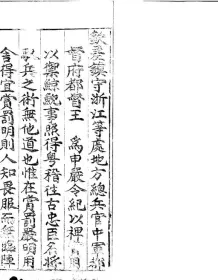 欽差鎮守浙江等處地方總兵官中軍都
督府都督王 為申嚴令紀以裡
以禦鯨鯢事照得粵稽往古忠臣名將
兵之術無他道也惟在賞罰嚴明用
舍得宜賞罰明則人知畏服而